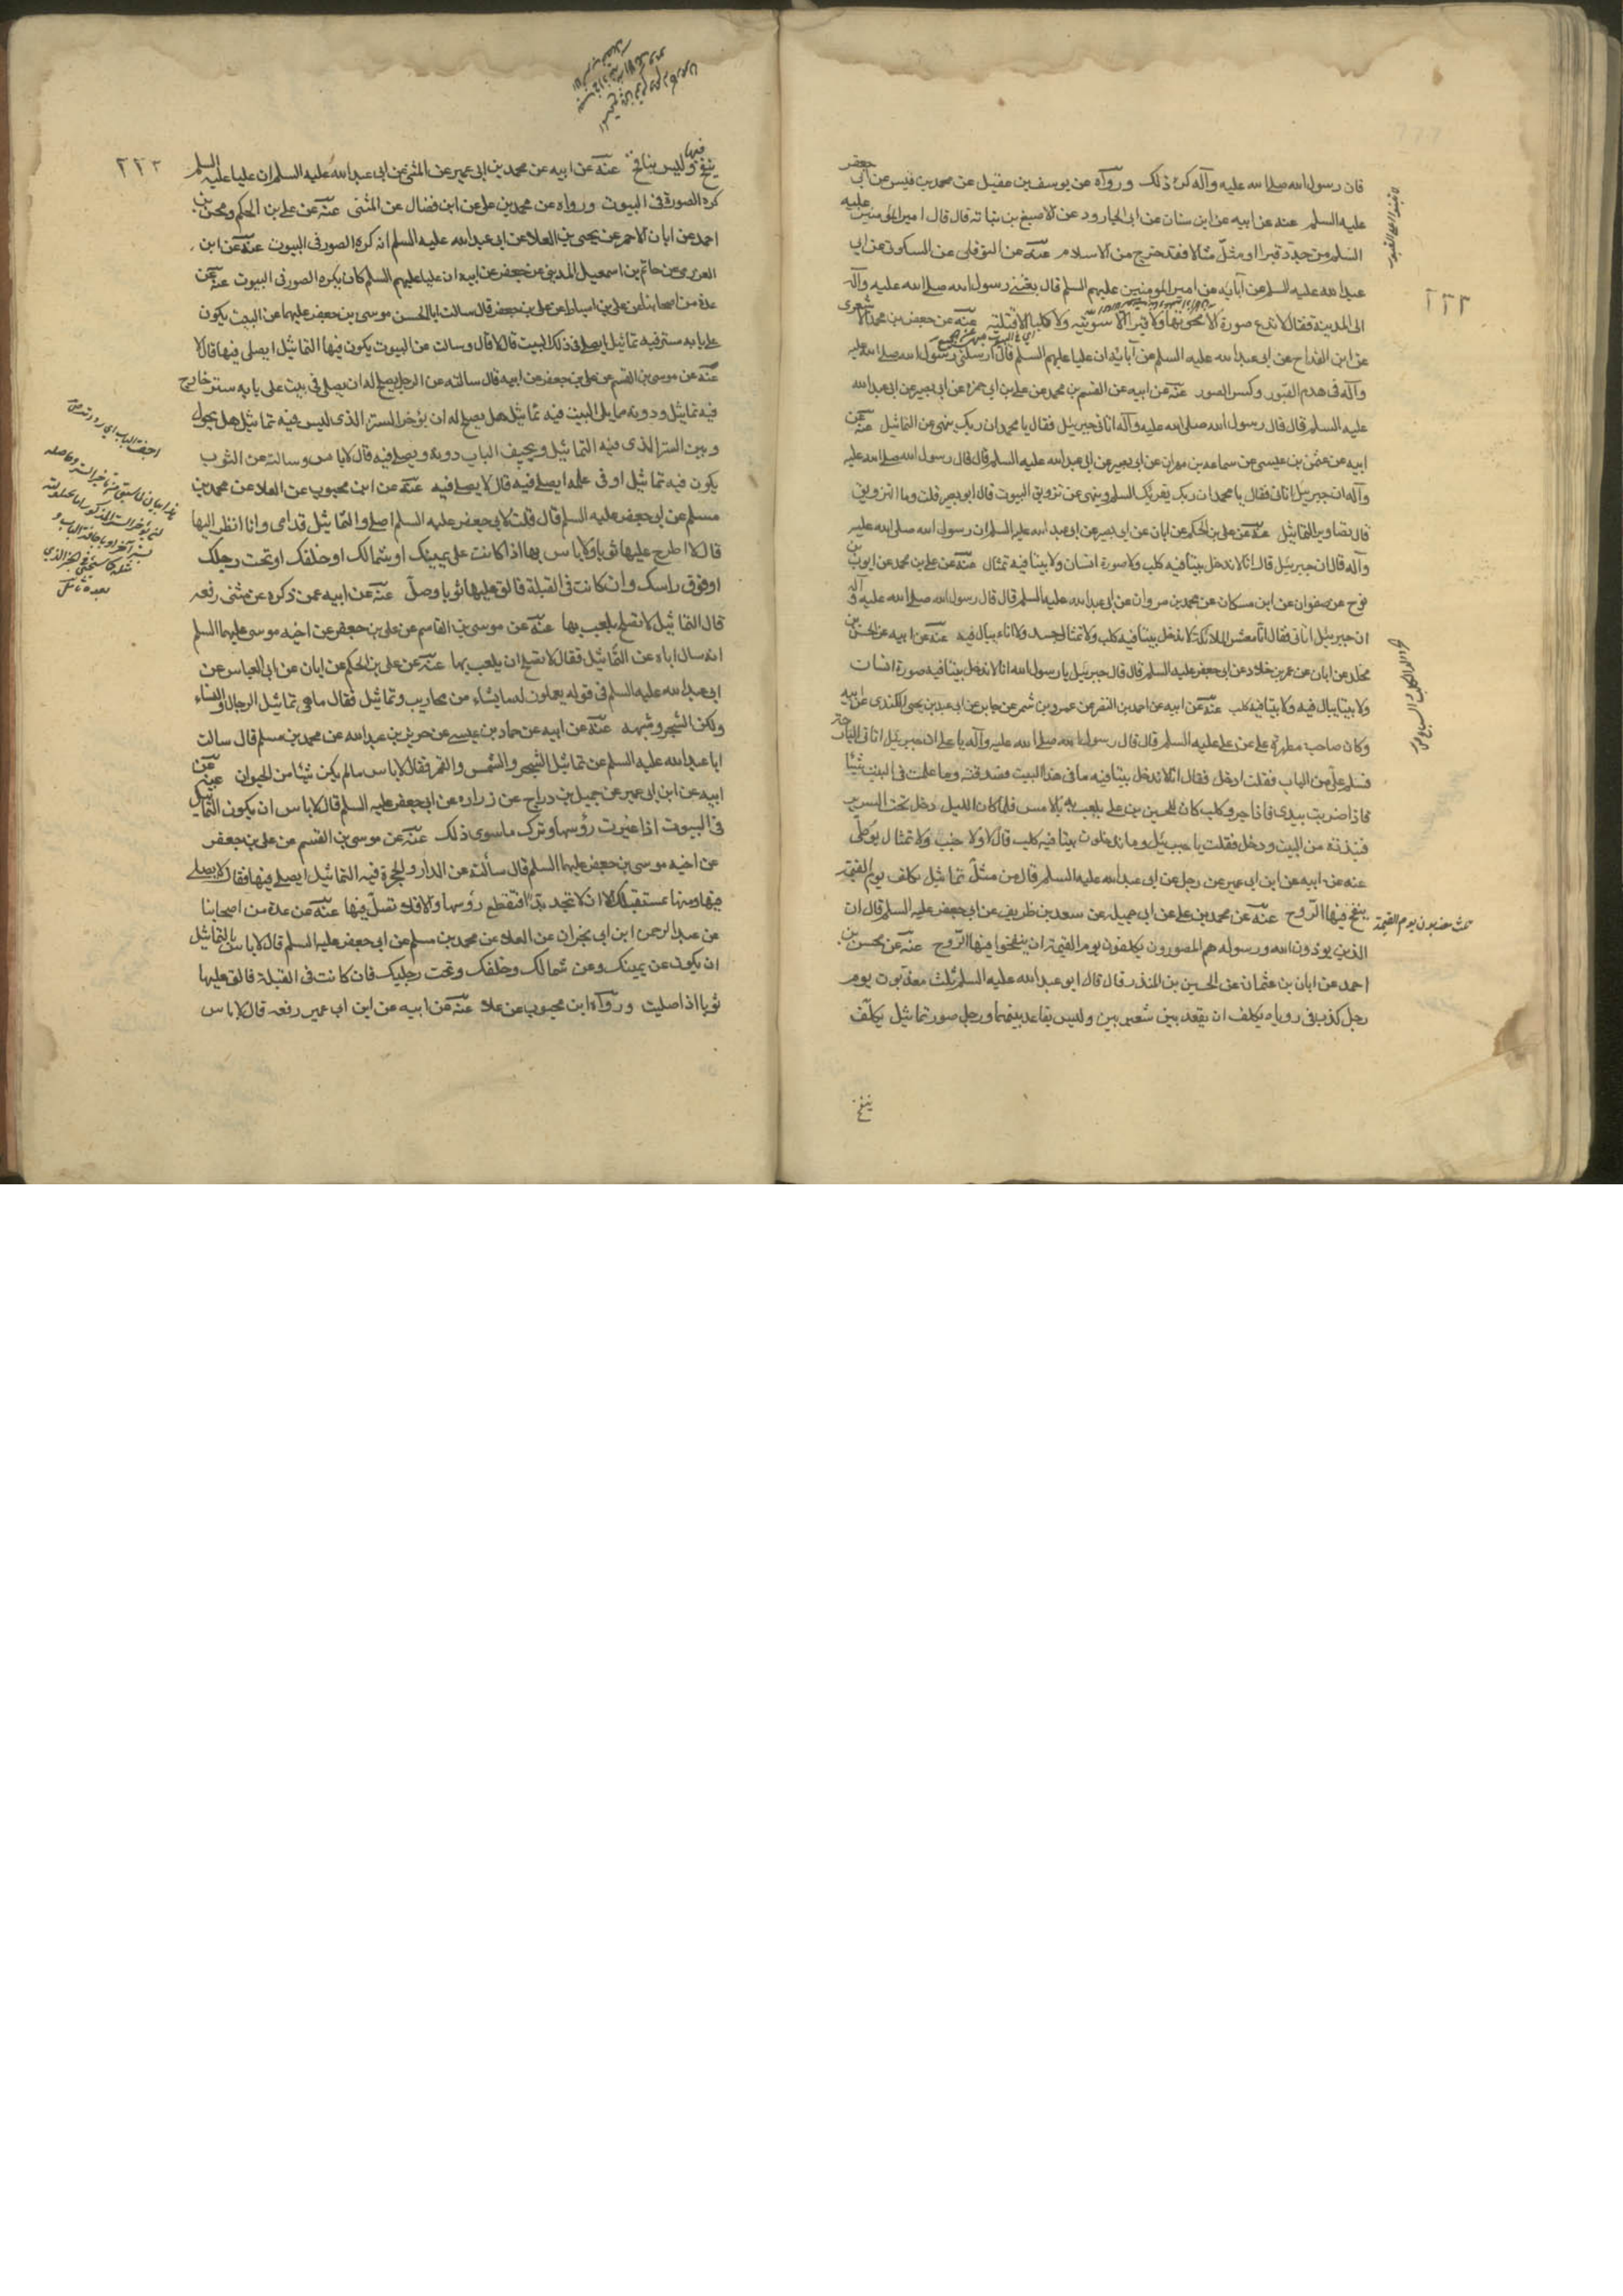 فان رسول الله صلى الله عليه وآله كره ذلك ورواه عن يوسف بن عقيل عن محمد بن قيس عن ابي جعفر
عليه السلم عنه عن ابيه عن ابن سنان عن ابى الجارود عن الاصبغ بن نباته قال قال اميرالمؤمنين عليه
السلم من جدد قبرا او مثل مثالا فقد خرج من الاسلام عنه عن النوفلى عن السكونى عن ابي
عبدالله عليه السلم عن آبايه عن امير المومنين عليهم السلم قال بعثنى رسول الله صلى الله عليه وآله
الى المدينة فقال لا تدع صورة الا محوتها ولا قبرا الا سويته ولا كلبا الا قتلته عنه عن جعفر بن محمد الاشعرى
عن ابن القداح عن ابى عبدالله عليه السلم عن آبائه ان عليا عليهم السلم قال ارسلنى رسول الله صلى الله عليه
وآله فى هدم القبور وكسر الصور عنه عن ابيه عن القسم بن محمد عن على بن ابى حمزه عن ابى بصير عن ابى عبدالله
عليه السلم قال قال رسول الله صلى الله عليه وآله اتانى جبرئيل فقال يا محمد ان ربك ينهى عن التماثيل عنه عن
ابيه عن عثمن بن عيسى عن سماعه بن مهران عن ابى بصير عن ابى عبدالله عليه السلم قال قال رسول الله صلى الله عليه
وآله ان جبرئيل اتانى فقال يا محمد ان ربك يقرئك السلم وينهى عن تزويق البيوت قال ابوبصير قلت وما التزويق
قال تصاوير التماثيل عنه عن على بن الحكم عن ابان عن ابى بصير عن ابى عبدالله عليه السلم ان رسول الله صلى الله عليه
وآله قال ان جبرئيل قال انا لا ندخل بيتا فيه كلب ولا صورة انسان ولا بيتا فيه تمثال عنه عن على بن محمد عن ايوب بن
نوح عن صفوان عن ابن مسكان عن محمد بن مروان عن ابى عبدالله عليه السلم قال قال رسول الله صلى الله عليه وآله
ان جبرئيل اتانى فقال انا معشر الملائكة لا ندخل بيتا فيه كلب ولا تمثال جسد ولا اناء يبال فيه عنه عن ابيه عن الحسن بن
مخلد عن ابان عن عمر بن خلاد عن ابى جعفر عليه السلم قال قال جبرئيل يا رسول الله انا لا ندخل بيتا فيه صورة انسان
ولا بيتا يبال فيه ولا بيتا فيه كلب عنه عن ابيه عن احمد بن النضر عن عمرو بن شمر عن جابر عن ابى عبد بن يحيى الكندى عن ابيه
وكان صاحب مطهرة على عن على عليه السلم قال قال رسول الله صلى الله عليه وآله يا على ان جبرئيل اتانى البارحة
فسلم على من الباب فقلت ادخل فقال انا لا ندخل بيتا فيه ما فى هذا البيت فصدقته وما علمت فى البيت شيئا
فاذا ضربت بيدى فاذا جرو كلب كان للحسين بن على يلعب به بالامس فلما كان الليل دخل تحت السرير
فنبذته من البيت ودخل فقلت يا جبرئيل وما تدخلون بيتا فيه كلب قال لا ولا جنب ولا تمثال يوطى
عنه عن ابيه عن ابن ابى عمير عن رجل عن ابى عبدالله عليه السلم قال من مثل تماثيل كلف يوم القيمة
ينفخ فيها الروح عنه عن محمد بن على عن ابى جميله عن سعد بن ظريف عن ابى جعفر عليه السلم قال ان
ثلث معذبون يوم القيمة
الذين يوذون الله ورسوله هم المصورون يكلفون يوم القيمة ان ينفخوا فيها الروح عنه عن محسن بن
احمد عن ابان بن عثمان عن الحسين بن المنذر قال قال ابو عبدالله عليه السلم ثلث معذبون يوم
رجل كذب فى روياه يكلف ان يعقد بين شعيرتين وليس بعاقد بينهما ورجل صور تماثيل يكلف
ينفخ
٢٢٣
ينفخ فيها وليس بنافخ عنه عن ابيه عن محمد بن ابى عمير عن المثنى عن ابى عبدالله عليه السلم ان عليا عليه السلم
كره الصورة فى البيوت ورواه عن محمد بن على عن ابن فضال عن المثنى عنه عن على بن الحكم ومحسن بن
احمد عن ابان الاحمر عن يحيى بن العلا عن ابى عبدالله عليه السلم انه كره الصور فى البيوت عنه عن ابن
العزرمى عن حاتم بن اسمعيل المدينى عن جعفر عن ابيه ان عليا عليهم السلم كان يكره الصور فى البيوت عنه عن
عدة من اصحابنا عن على بن اسباط عن على بن جعفر قال سالت ابا الحسن موسى بن جعفر عليهما عن البيت يكون
على بابه ستر فيه تماثيل ايصلى فى ذلك البيت قال لا قال وسالته عن البيوت يكون فيها التماثيل ايصلى فيها قال لا
عنه عن موسى بن القسم عن على بن جعفر عن ابيه قال سالته عن الرجل يصلح له ان يصلى فى بيت على بابه ستر خارج
فيه تماثيل ودونه مما يلى البيت ستر فيه تماثيل هل يصلح له ان يؤخر الستر الذى ليس فيه تماثيل هل يحول
وبين الستر الذى فيه التماثيل ويجيف الباب دونه ويصلى فيه قال لا باس وسالته عن الثوب
يكون فيه تماثيل او فى علمه ايصلى فيه قال لا يصلى فيه عنه عن ابن محبوب عن العلا عن محمد بن
مسلم عن ابى جعفر عليه السلم قال قلت لابى جعفر عليه السلم اصلى والتماثيل قدامى وانا انظر اليها
قال لا اطرح عليها ثوبا ولا باس بها اذا كانت على يمينك او شمالك او خلفك او تحت رجلك
او فوق راسك وان كانت فى القبلة فالق عليها ثوبا وصل عنه عن ابيه عمن ذكره عن مثنى رفعه
قال التماثيل لا تصلح يلعب بها عنه عن موسى بن القاسم عن على بن جعفر عن اخيه موسى عليهما السلم
انه سال اباه عن التماثيل فقال لا تصلح ان يلعب بها عنه عن على بن الحكم عن ابان عن ابى العباس عن
ابى عبدالله عليه السلم فى قوله يعملون له ما يشاء من محاريب وتماثيل فقال ما هى تماثيل الرجال والنساء
ولكن الشجر وشبهه عنه عن ابيه عن حماد بن عيسى عن حريز بن عبدالله عن محمد بن مسلم قال سالت
ابا عبدالله عليه السلم عن تماثيل الشجر والشمس والقمر فقال لا باس ما لم يكن شيئا من الحيوان عنه عن
ابيه عن ابن ابى عمير عن جميل بن دراج عن زراره عن ابى جعفر عليه السلم قال لا باس ان يكون التماثيل
فى البيوت اذا غيرت رؤسها وترك ما سوى ذلك عنه عن موسى بن القسم عن على بن جعفر
عن اخيه موسى بن جعفر عليهما السلم قال سألته عن الدار والحجرة فيها التماثيل ايصلى فيها فقال لا يصلى
فيها ومنها مستقبلك الا ان لا تجد بدا فتقطع رؤسها والا فلا تصل فيها عنه عن عدة من اصحابنا
عن عبدالرحمن ابن ابى نجران عن العلا عن محمد بن مسلم عن ابى جعفر عليه السلم قال لا باس بالتماثيل
ان يكون عن يمينك وعن شمالك وخلفك وتحت رجليك فان كانت فى القبلة فالق عليها
ثوبا اذا صليت ورواه ابن محبوب عن علا عنه عن ابيه عن ابن ابى عمير رفعه قال لا باس
٢٢٣